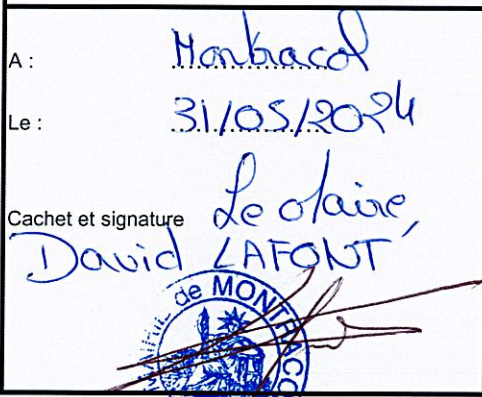 A : Montracol
Le : 31/05/2024
Cachet et signature Le Maire,
David LAFONT
MAIRIE de MONTRACOL